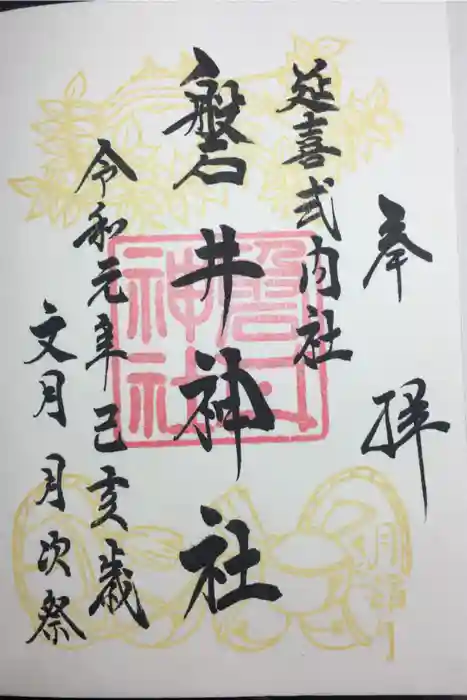 奉拝
延喜式内社
磐井神社
令和元年己亥歳
文月 月次祭
磐井神社
月詣り